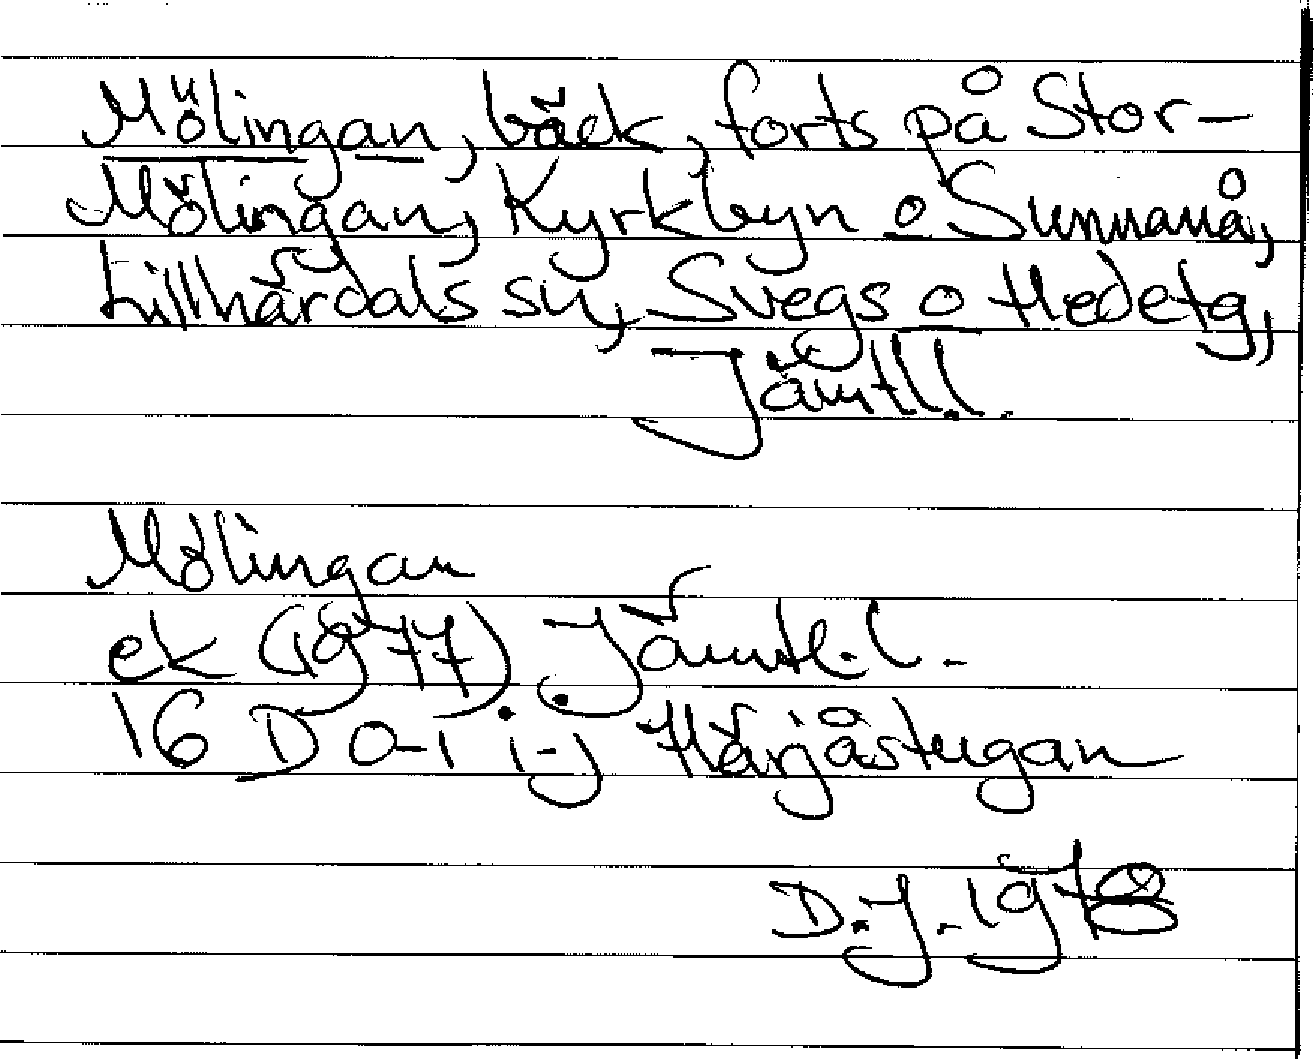 Mölingan, bäck, forts på Stor-
Mölingan, Kyrkbyn o Sunnanå,
Lillhärdals sn, Svegs o Hedetg,
Jämtl.l.
Mölingan
ek (1977). Jämtl.l.
16 D 0-1 i-j Härjåstugan
D.J. 1978